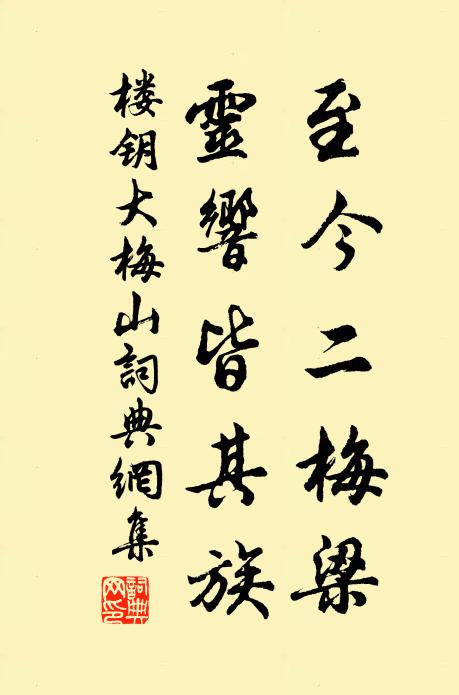 至今二梅梁
靈響皆其族
楼钥大梅山詞典網集
詞典网印